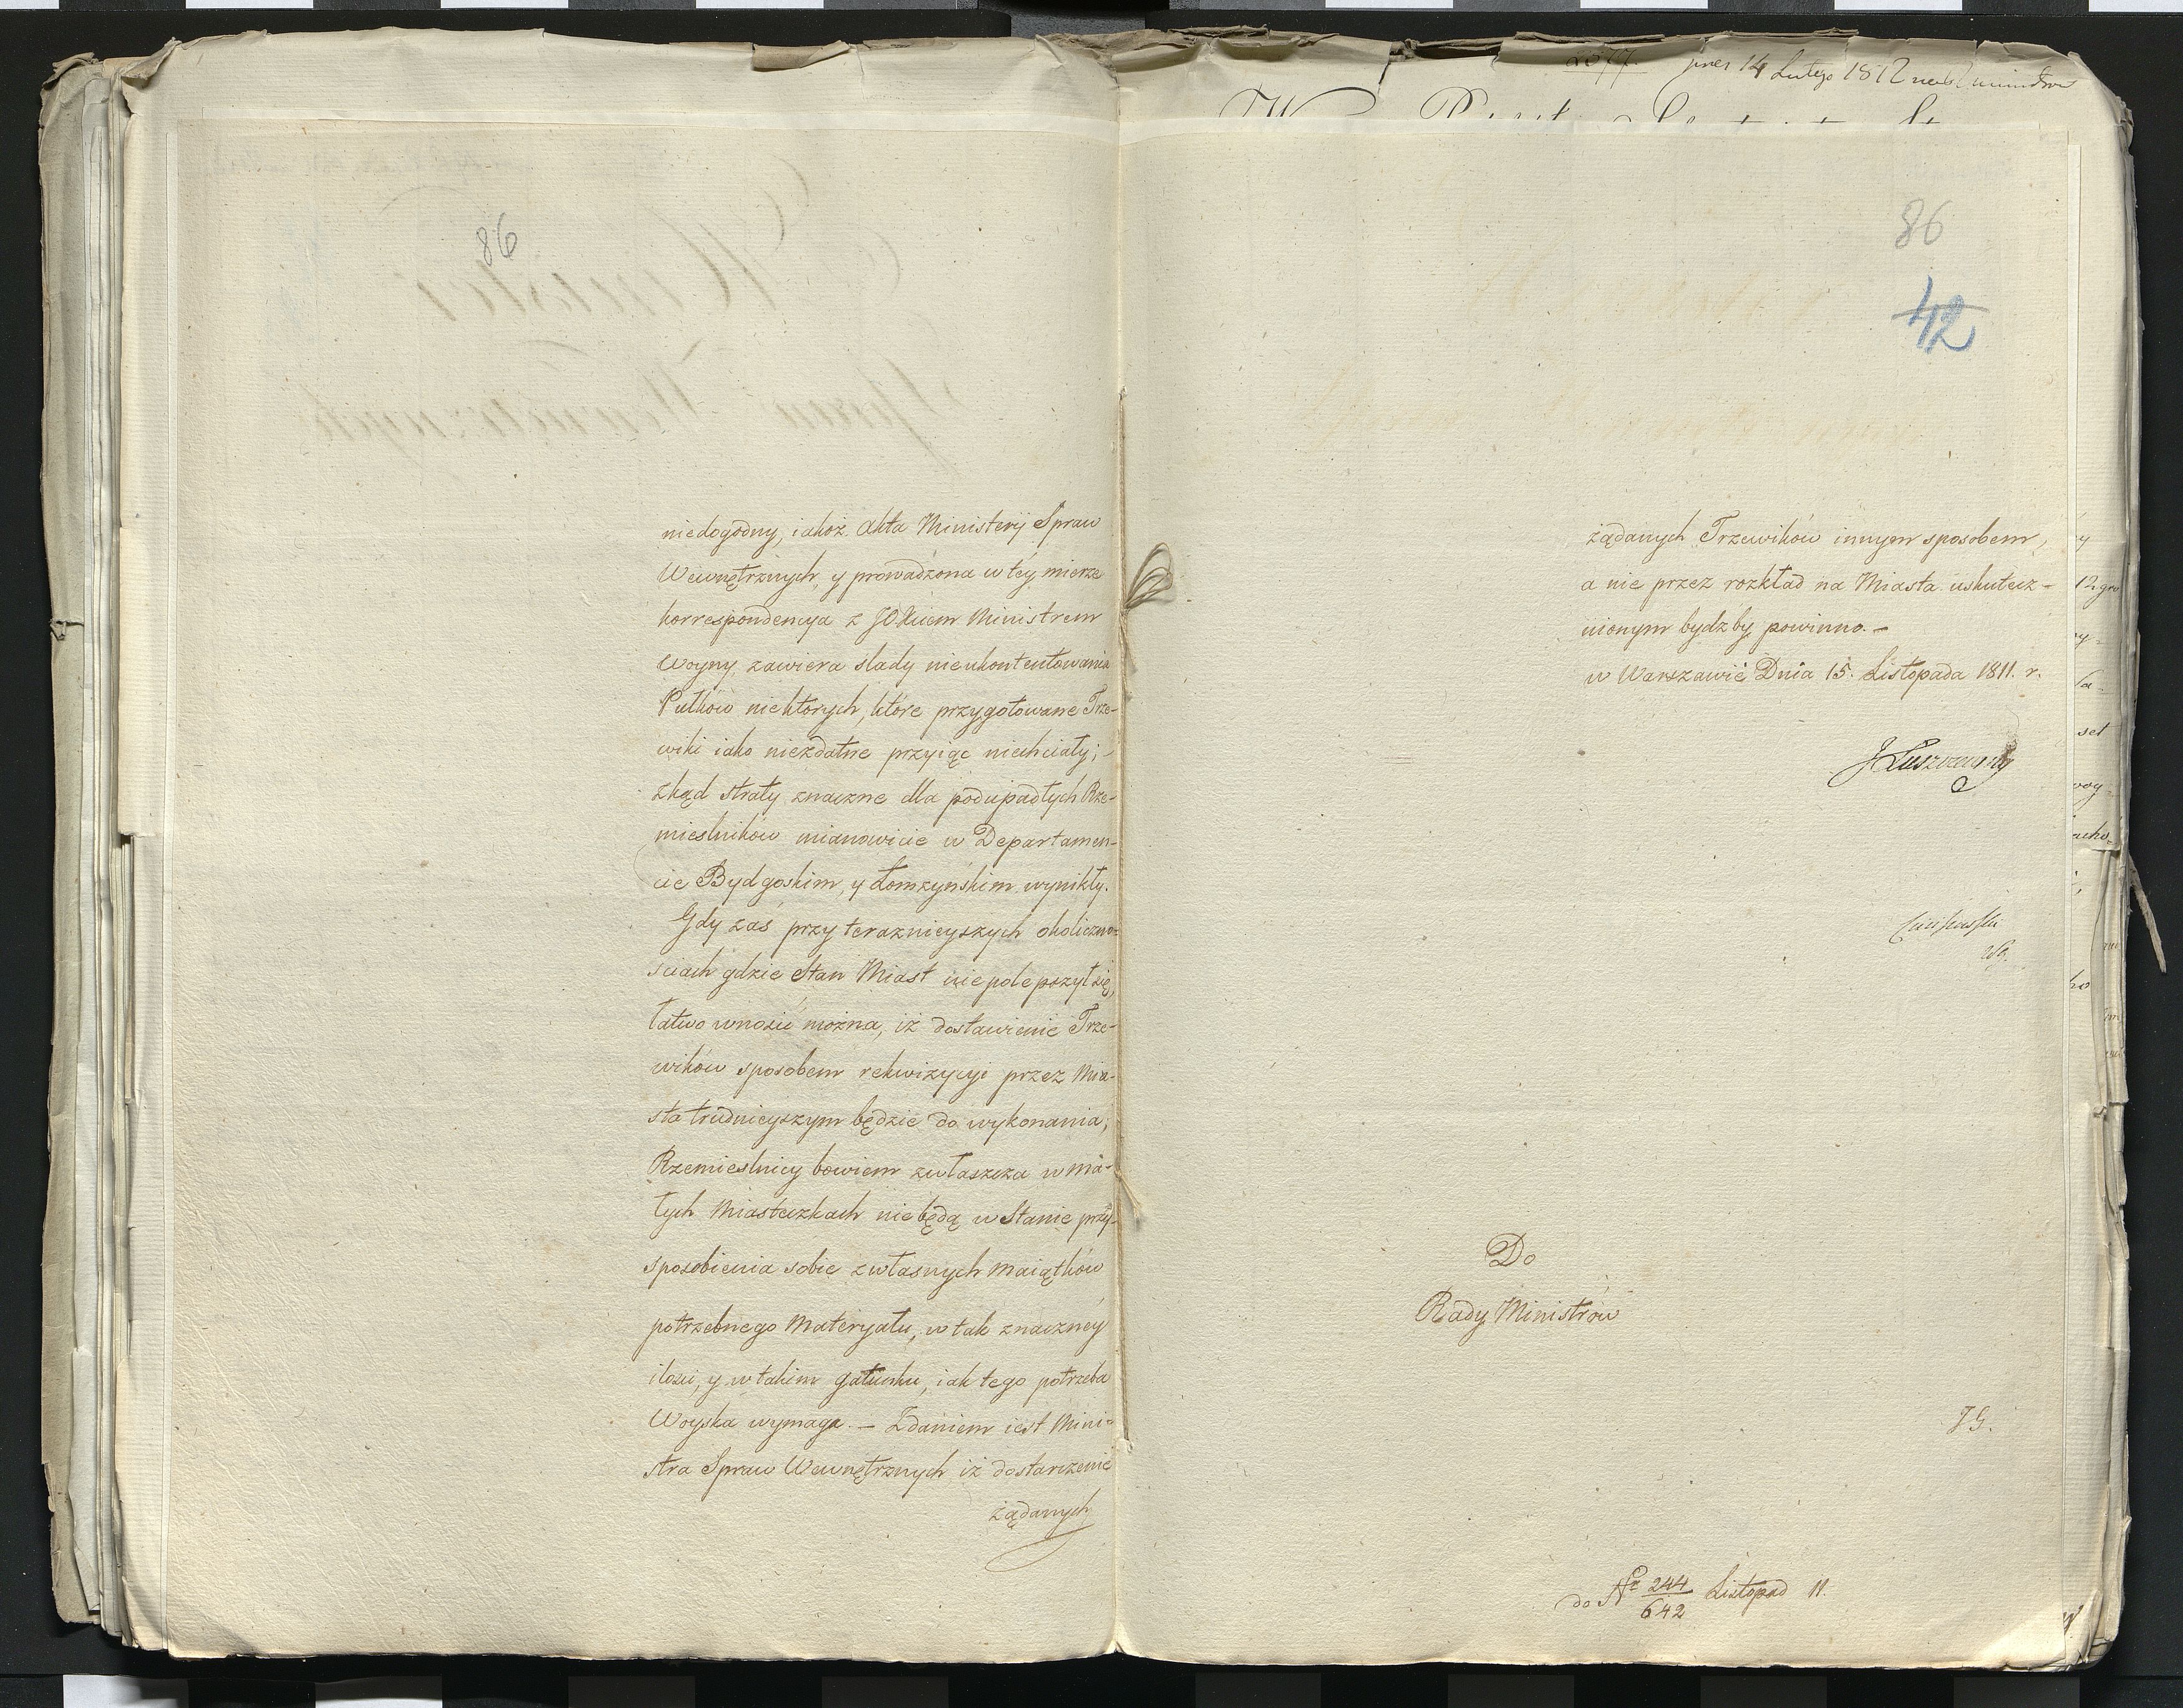 86
niedogodny, iakoż Akta Ministerij Spraw
Wewnętrznych, y prowadzona w tey mierze
korrespondencya z JOXiem Ministrem
Woyny, zawiera slady nieukontentowania
Pułków niektorych, które przygotowane Trze-
wiki iako niezdatne przyiąc niechciały;
zkąd straty znaczne dla podupadłych Rze-
mieslników mianowicie w Departamen-
cie Bydgoskim, y Łomzyńskim wynikły.
Gdy zaś przy teraznieyszych okoliczno-
sciach gdzie Stan Miast niepolepszył się,
łatwo wnosić można, iż dostawienie Trze-
wików sposobem rekwizycyi przez Mia-
sta trudnieyszym będzie do wykonania;
Rzemieslnicy bowiem zwłaszcza w ma-
łych Miasteczkach nie będą w Stanie przy-
sposobienia sobie z własnych maiątków
potrzebnego Materyału, w tak znaczney
ilosci, y w takim gatunku, iak tego potrzeba
Woyska wymaga. — Zdaniem iest Mini-
stra Spraw Wewnętrznych, iż dostarczenie
żądanych
14 Lutego 1812
86
42
żądanych Trzewików innym sposobem,
a nie przez rozkład na Miasta uskutecz-
nionym bydź by powinno. —
w Warszawie Dnia 15. Listopada 1811. r.
JŁuszczewski
Do
Rady Ministrów
JG.
do Nr 244/642 Listopad 11.